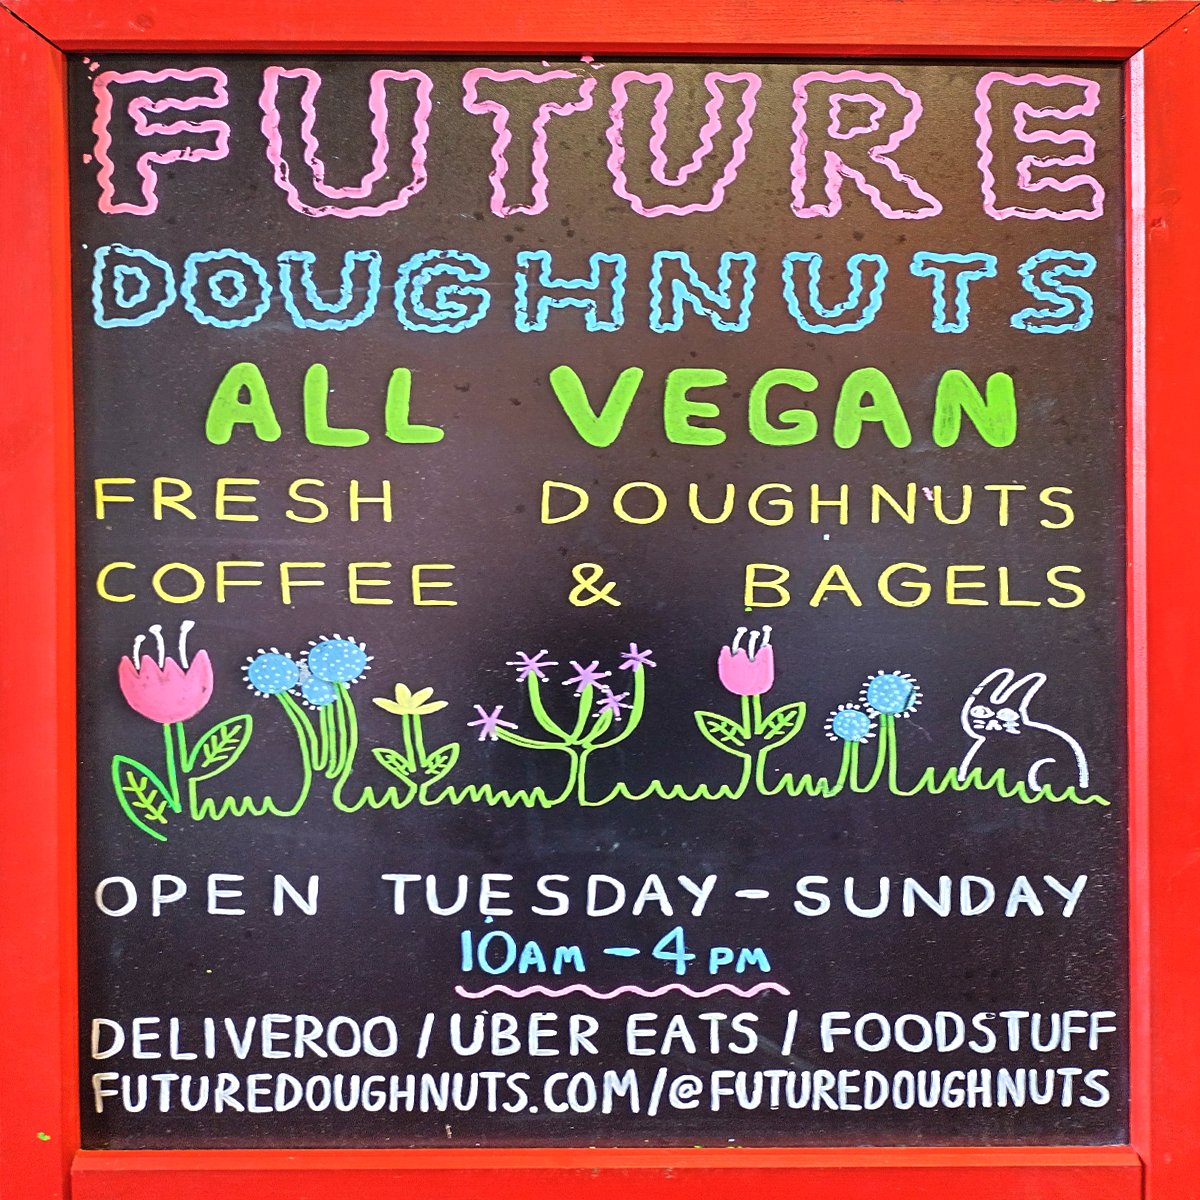 FUTURE
DOUGHNUTS
ALL VEGAN
FRESH DOUGHNUTS
COFFEE & BAGELS
OPEN TUESDAY - SUNDAY
10AM - 4PM
DELIVEROO / UBER EATS / FOODSTUFF
FUTUREDOUGHNUTS.COM/@FUTUREDOUGHNUTS